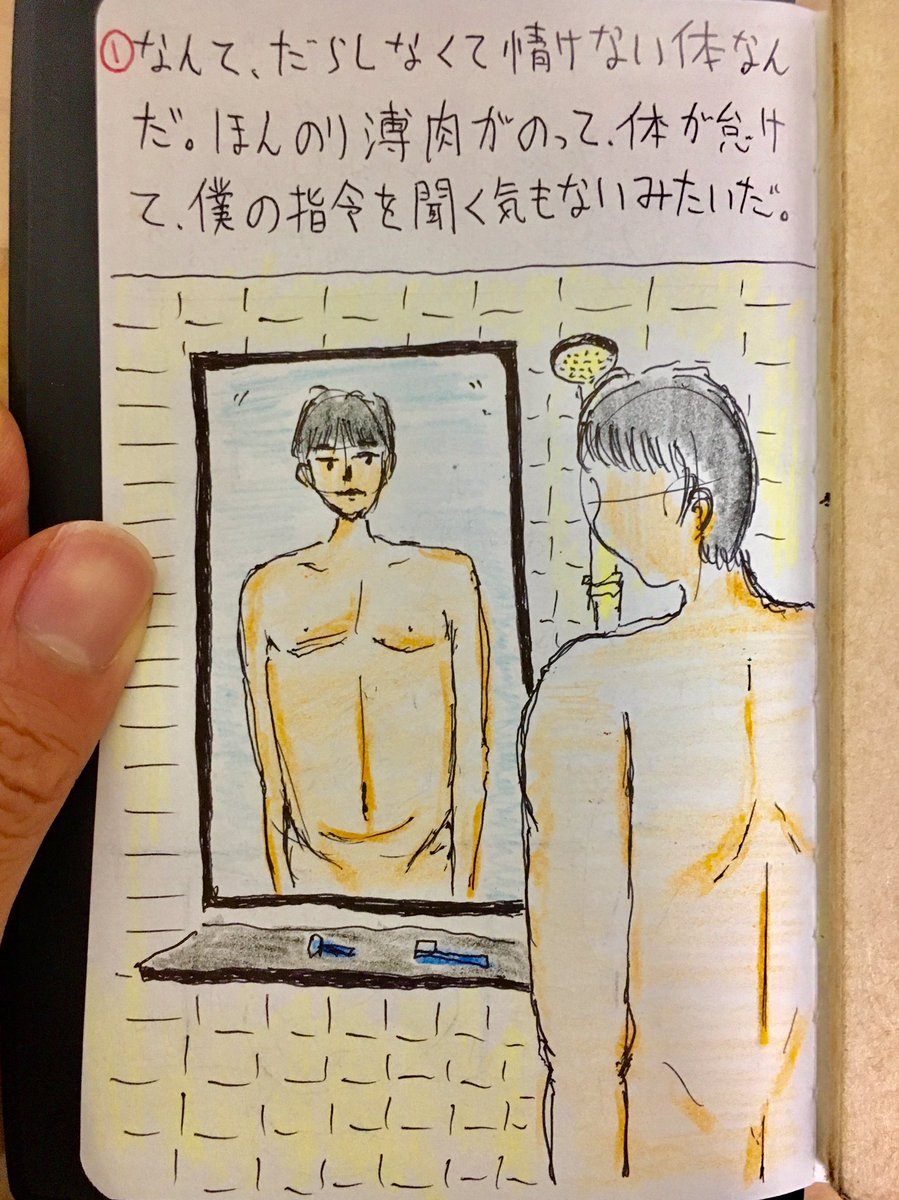 ①なんて、だらしなくて情けない体なん
だ。ほんのり薄肉がのって、体が怠け
て、僕の指令を聞く気もないみたいだ。